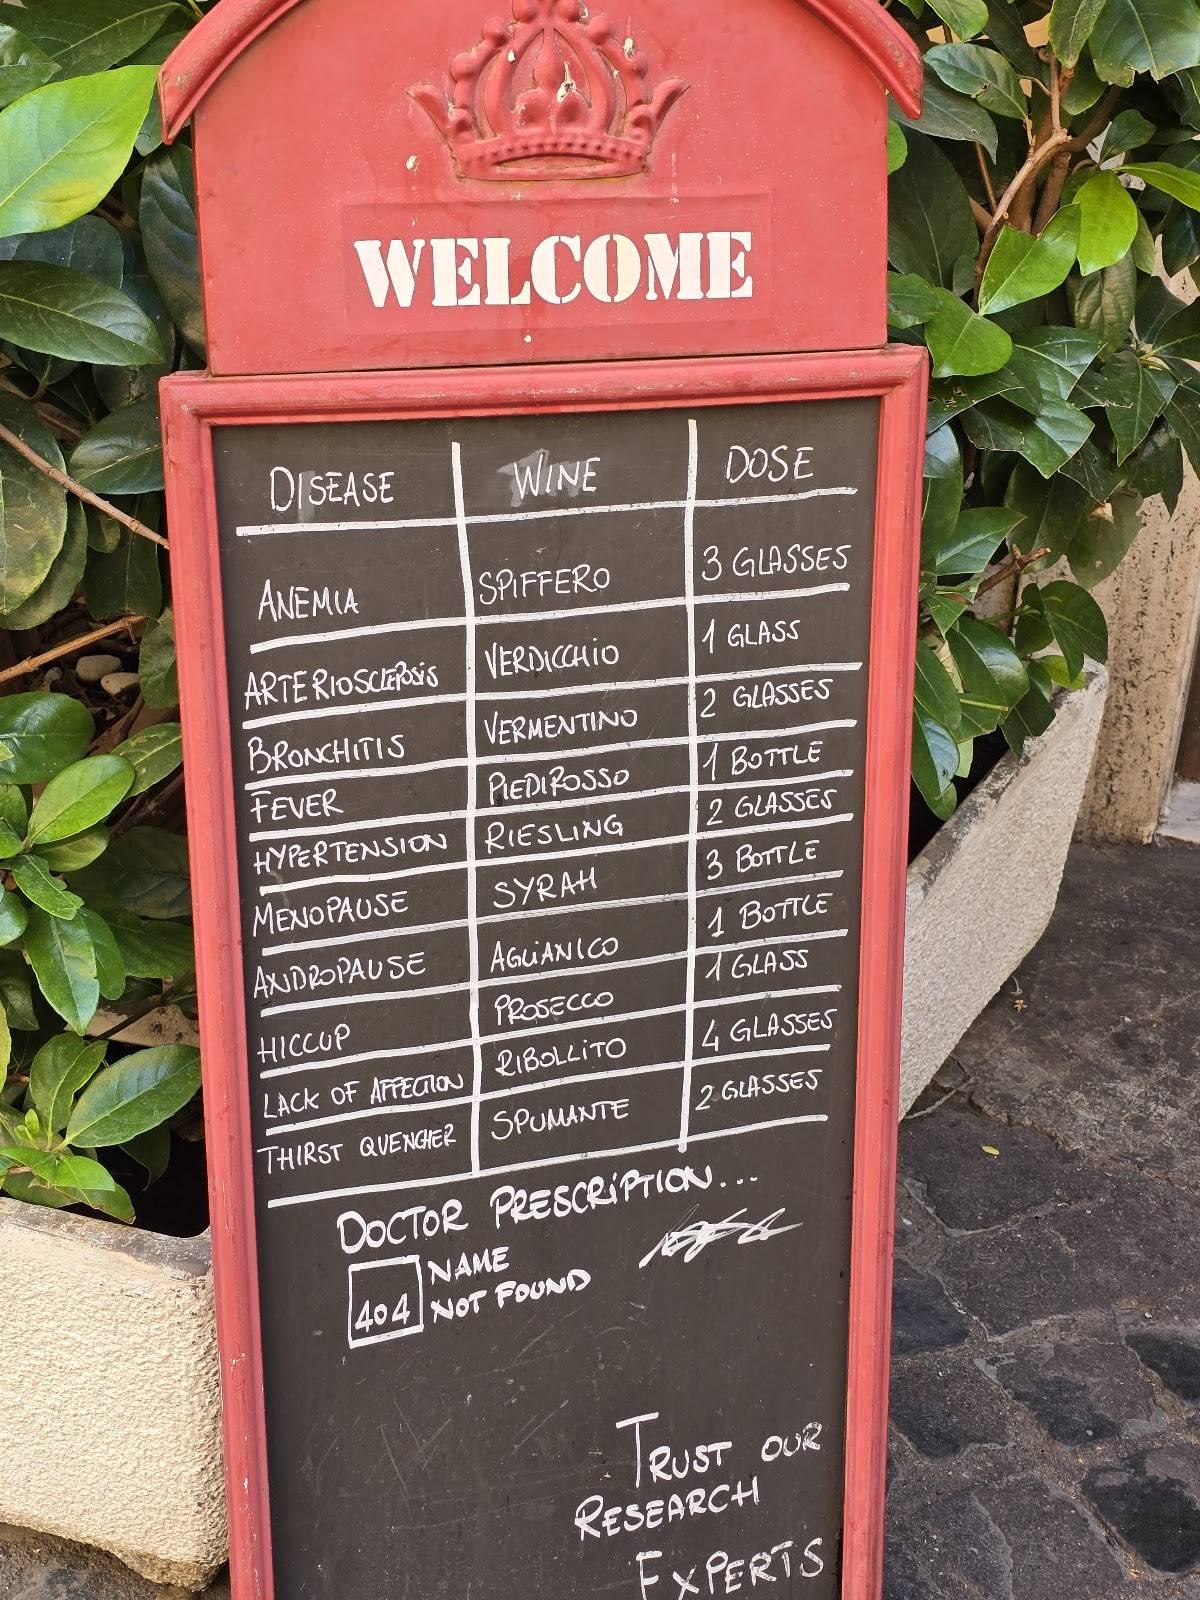 WELCOME
DISEASE WINE DOSE
ANEMIA SPIFFERO 3 GLASSES
ARTERIOSCLEROSIS VERDICCHIO 1 GLASS
BRONCHITIS VERMENTINO 2 GLASSES
FEVER PIEDIROSSO 1 BOTTLE
HYPERTENSION RIESLING 2 GLASSES
MENOPAUSE SYRAH 3 BOTTLE
ANDROPAUSE AGLIANICO 1 BOTTLE
HICCUP PROSECCO 1 GLASS
LACK OF AFFECTION RIBOLLITO 4 GLASSES
THIRST QUENCHER SPUMANTE 2 GLASSES
DOCTOR PRESCRIPTION...
404 NAME
NOT FOUND
TRUST OUR
RESEARCH
EXPERTS